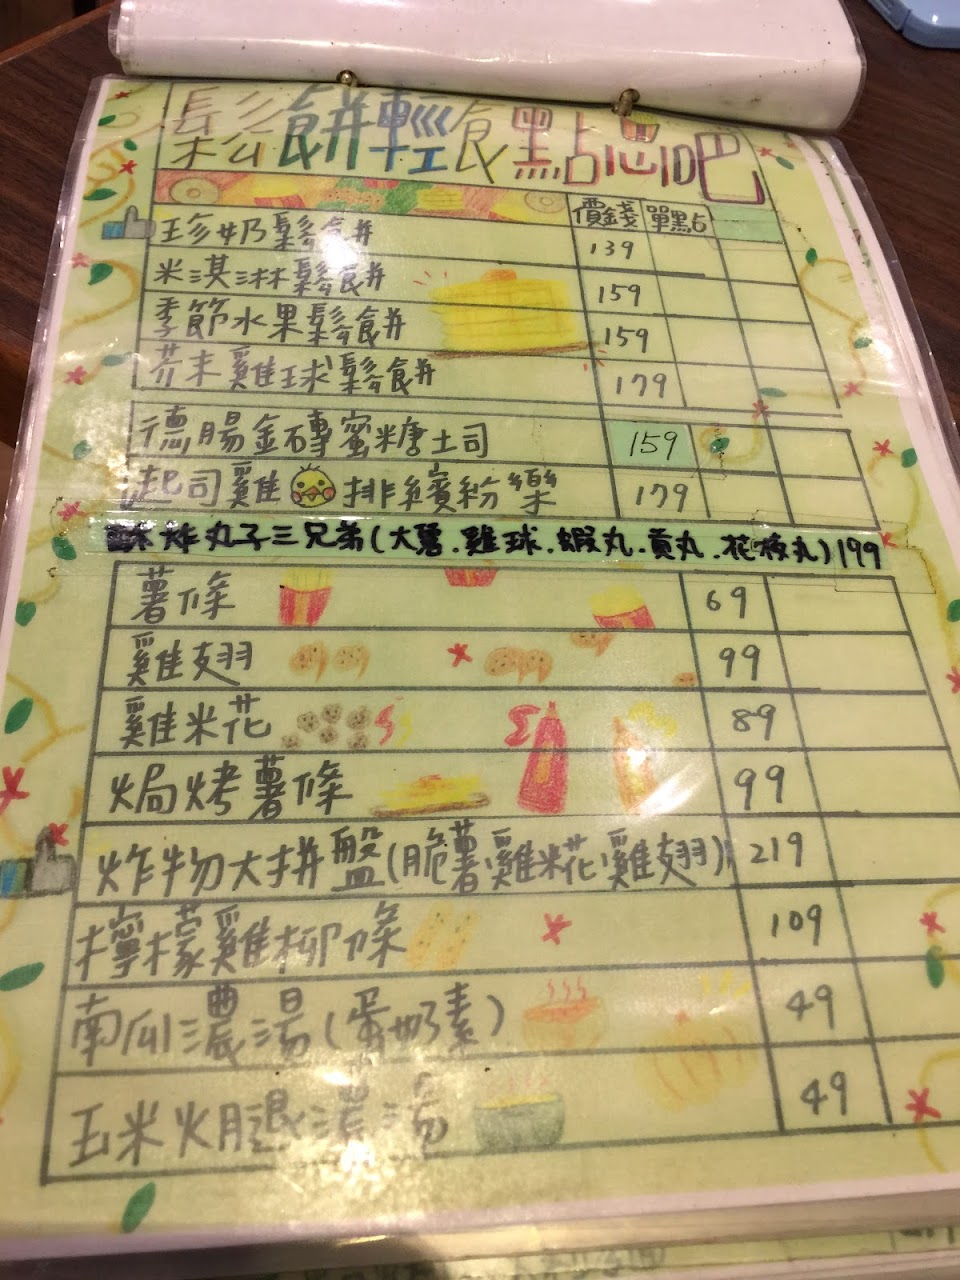 鬆餅輕食點心吧
價錢 單點
珍奶鬆餅 139
米淇淋鬆餅 159
季節水果鬆餅 159
芥末雞球鬆餅 179
德腸金磚蜜糖土司 159
起司雞排繽紛樂 179
炸丸子三兄弟(大薯.雞球.蝦丸.貢丸.花枝丸)199
薯條 69
雞翅 99
雞米花 89
焗烤薯條 99
炸物大拼盤(脆薯雞米花雞翅) 219
檸檬雞柳條 109
南瓜濃湯(蛋奶素) 49
玉米火腿濃湯 49